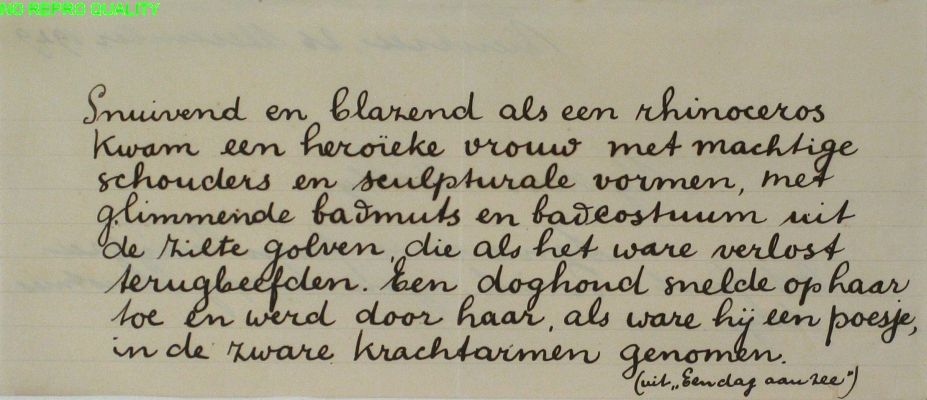 NO REPRO QUALITY
Snuivend en blazend als een rhinoceros
kwam een heroïeke vrouw met machtige
schouders en sculpturale vormen, met
glimmende badmuts en badcostuum uit
de zilte golven, die als het ware verlost
terugbeefden. Een doghond snelde op haar
toe en werd door haar, als ware hij een poesje,
in de zware krachtarmen genomen.
(uit „Een dag aan zee")